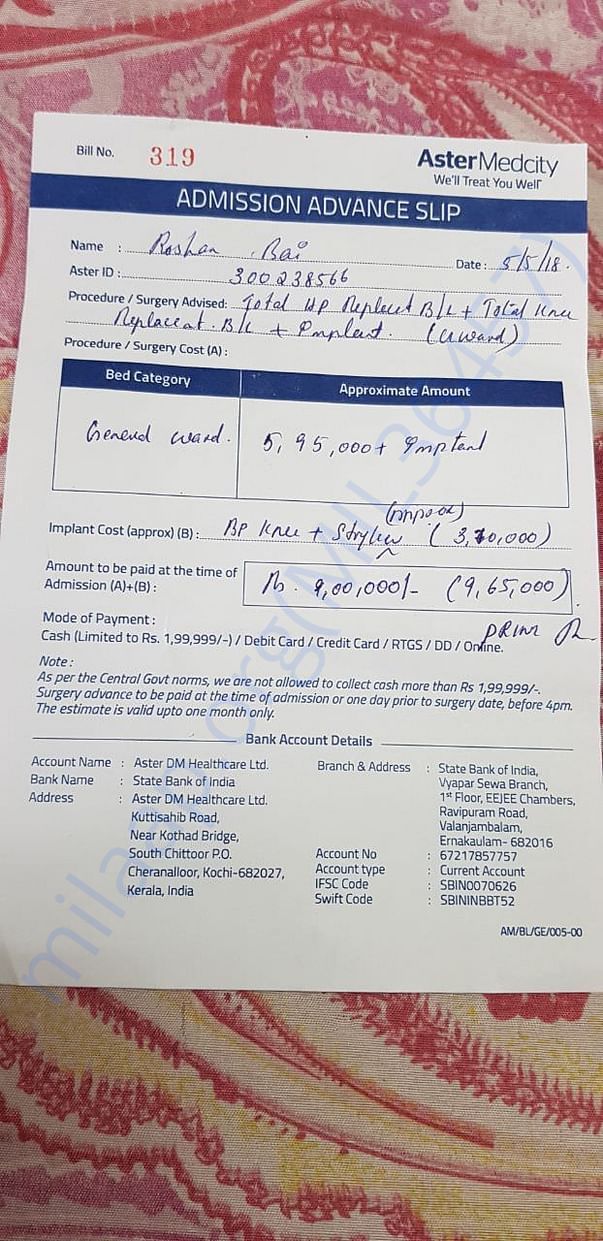 Bill No. 319
AsterMedcity
We'll Treat You Well
ADMISSION ADVANCE SLIP
Name : Roshan Bai
Date : 5/5/18.
Aster ID : 300238566
Procedure / Surgery Advised: Total Hip Replacet B/L + Total Knee
Replacet B/L + Implant. (ward)
Procedure / Surgery Cost (A) :
Bed Category Approximate Amount
General ward. 5,95,000 + Implant
Implant Cost (approx) (B) : Knee + Stryker (3,70,000)
Amount to be paid at the time of
Admission (A)+(B) : Rs. 9,00,000/- (9,65,000)
Mode of Payment :
Cash (Limited to Rs. 1,99,999/-) / Debit Card / Credit Card / RTGS / DD / Online.
Note :
As per the Central Govt norms, we are not allowed to collect cash more than Rs 1,99,999/-.
Surgery advance to be paid at the time of admission or one day prior to surgery date, before 4pm.
The estimate is valid upto one month only.
Bank Account Details
Account Name : Aster DM Healthcare Ltd.
Bank Name : State Bank of India
Address : Aster DM Healthcare Ltd.
Kuttisahib Road,
Near Kothad Bridge,
South Chittoor P.O.
Cheranalloor, Kochi-682027,
Kerala, India
Branch & Address : State Bank of India,
Vyapar Sewa Branch,
1st Floor, EEJEE Chambers,
Ravipuram Road,
Valanjambalam,
Ernakaulam- 682016
Account No : 67217857757
Account type : Current Account
IFSC Code : SBIN0070626
Swift Code : SBININBBT52
AM/BL/GE/005-00